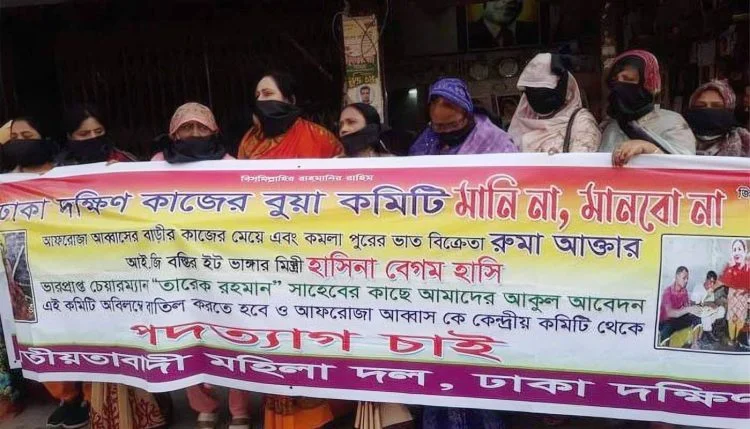 বিসমিল্লাহির রাহমানির রাহিম
ঢাকা দক্ষিণ কাজের বুয়া কমিটি মানি না, মানবো না
আফরোজা আব্বাসের বাড়ীর কাজের মেয়ে এবং কমলা পুরের ভাত বিক্রেতা রুমা আক্তার
আই.জি বস্তির ইট ভাঙ্গার মিস্ত্রী হাসিনা বেগম হাসি
ভারপ্রাপ্ত চেয়ারম্যান "তারেক রহমান" সাহেবের কাছে আমাদের আকুল আবেদন
এই কমিটি অবিলম্বে বাতিল করতে হবে ও আফরোজা আব্বাস কে কেন্দ্রীয় কমিটি থেকে
পদত্যাগ চাই
তীয়তাবাদী মহিলা দল, ঢাকা দক্ষি